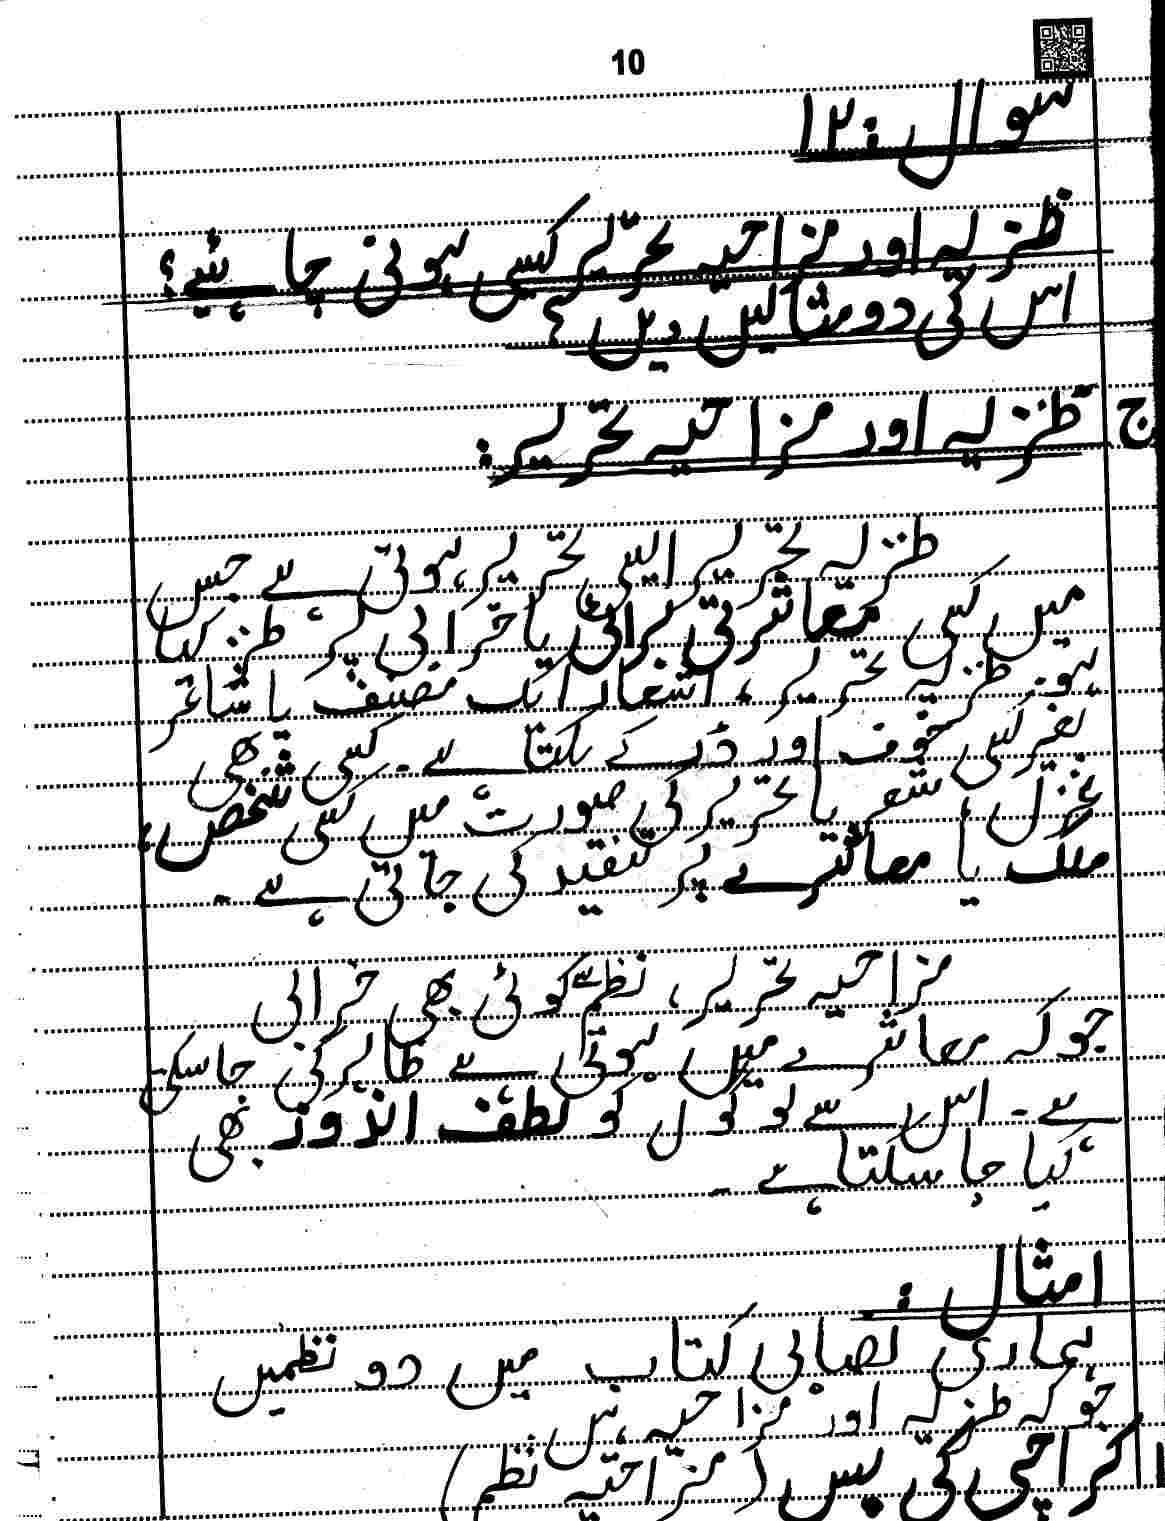 10
سوال :١٢
طنزیہ اور مزاحیہ تحریر کیسی ہونی چاہئیے؟
اس کی دو مثالیں دیں؟
ج طنزیہ اور مزاحیہ تحریر:
طنزیہ تحریر ایسی تحریر ہوتی ہے جس
میں کسی معاشرتی برائی یا خرابی پر طنز کیا
ہو۔ طنزیہ تحریر، اشعار ایک مصنف یا شاعر
بغیر کسی خوف اور ڈر کے لکھتا ہے۔ کسی بھی
غزل، شعر یا تحریر کی صورت میں کسی شخص،
ملک یا معاشرے پر تنقید کی جاتی ہے۔
مزاحیہ تحریر، نظم سے کوئی بھی خرابی
جو کہ معاشرے میں ہوتی ہے ظاہر کی جاسکتی
ہے۔ اس سے لوگوں کو لطف اندوز بھی
کیا جا سکتا ہے۔
امثال :
ہماری نصابی کتاب میں دو نظمیں
جو کہ طنزیہ اور مزاحیہ ہیں
کراچی کی بس (مزاحیہ نظم)